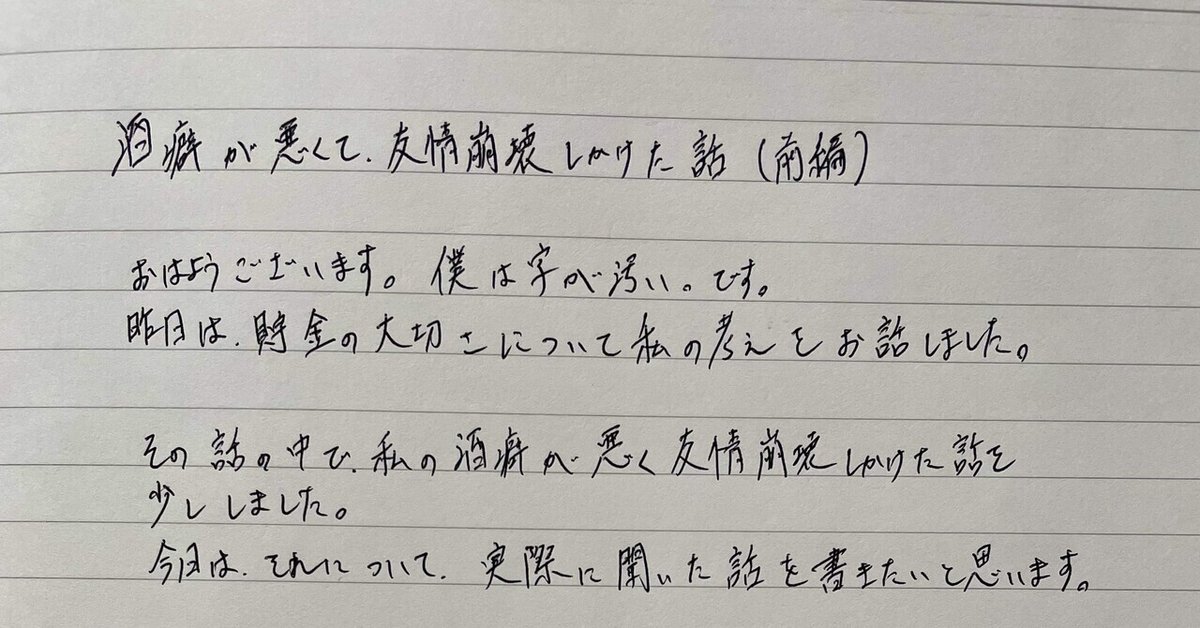 酒癖が悪くて、友情崩壊しかけた話(前編)
おはようございます。僕は字が汚い。です。
昨日は、貯金の大切さについて私の考えをお話しました。
その話の中で、私の酒癖が悪く友情崩壊しかけた話を
少ししました。
今日は、それについて、実際に聞いた話を書きたいと思います。